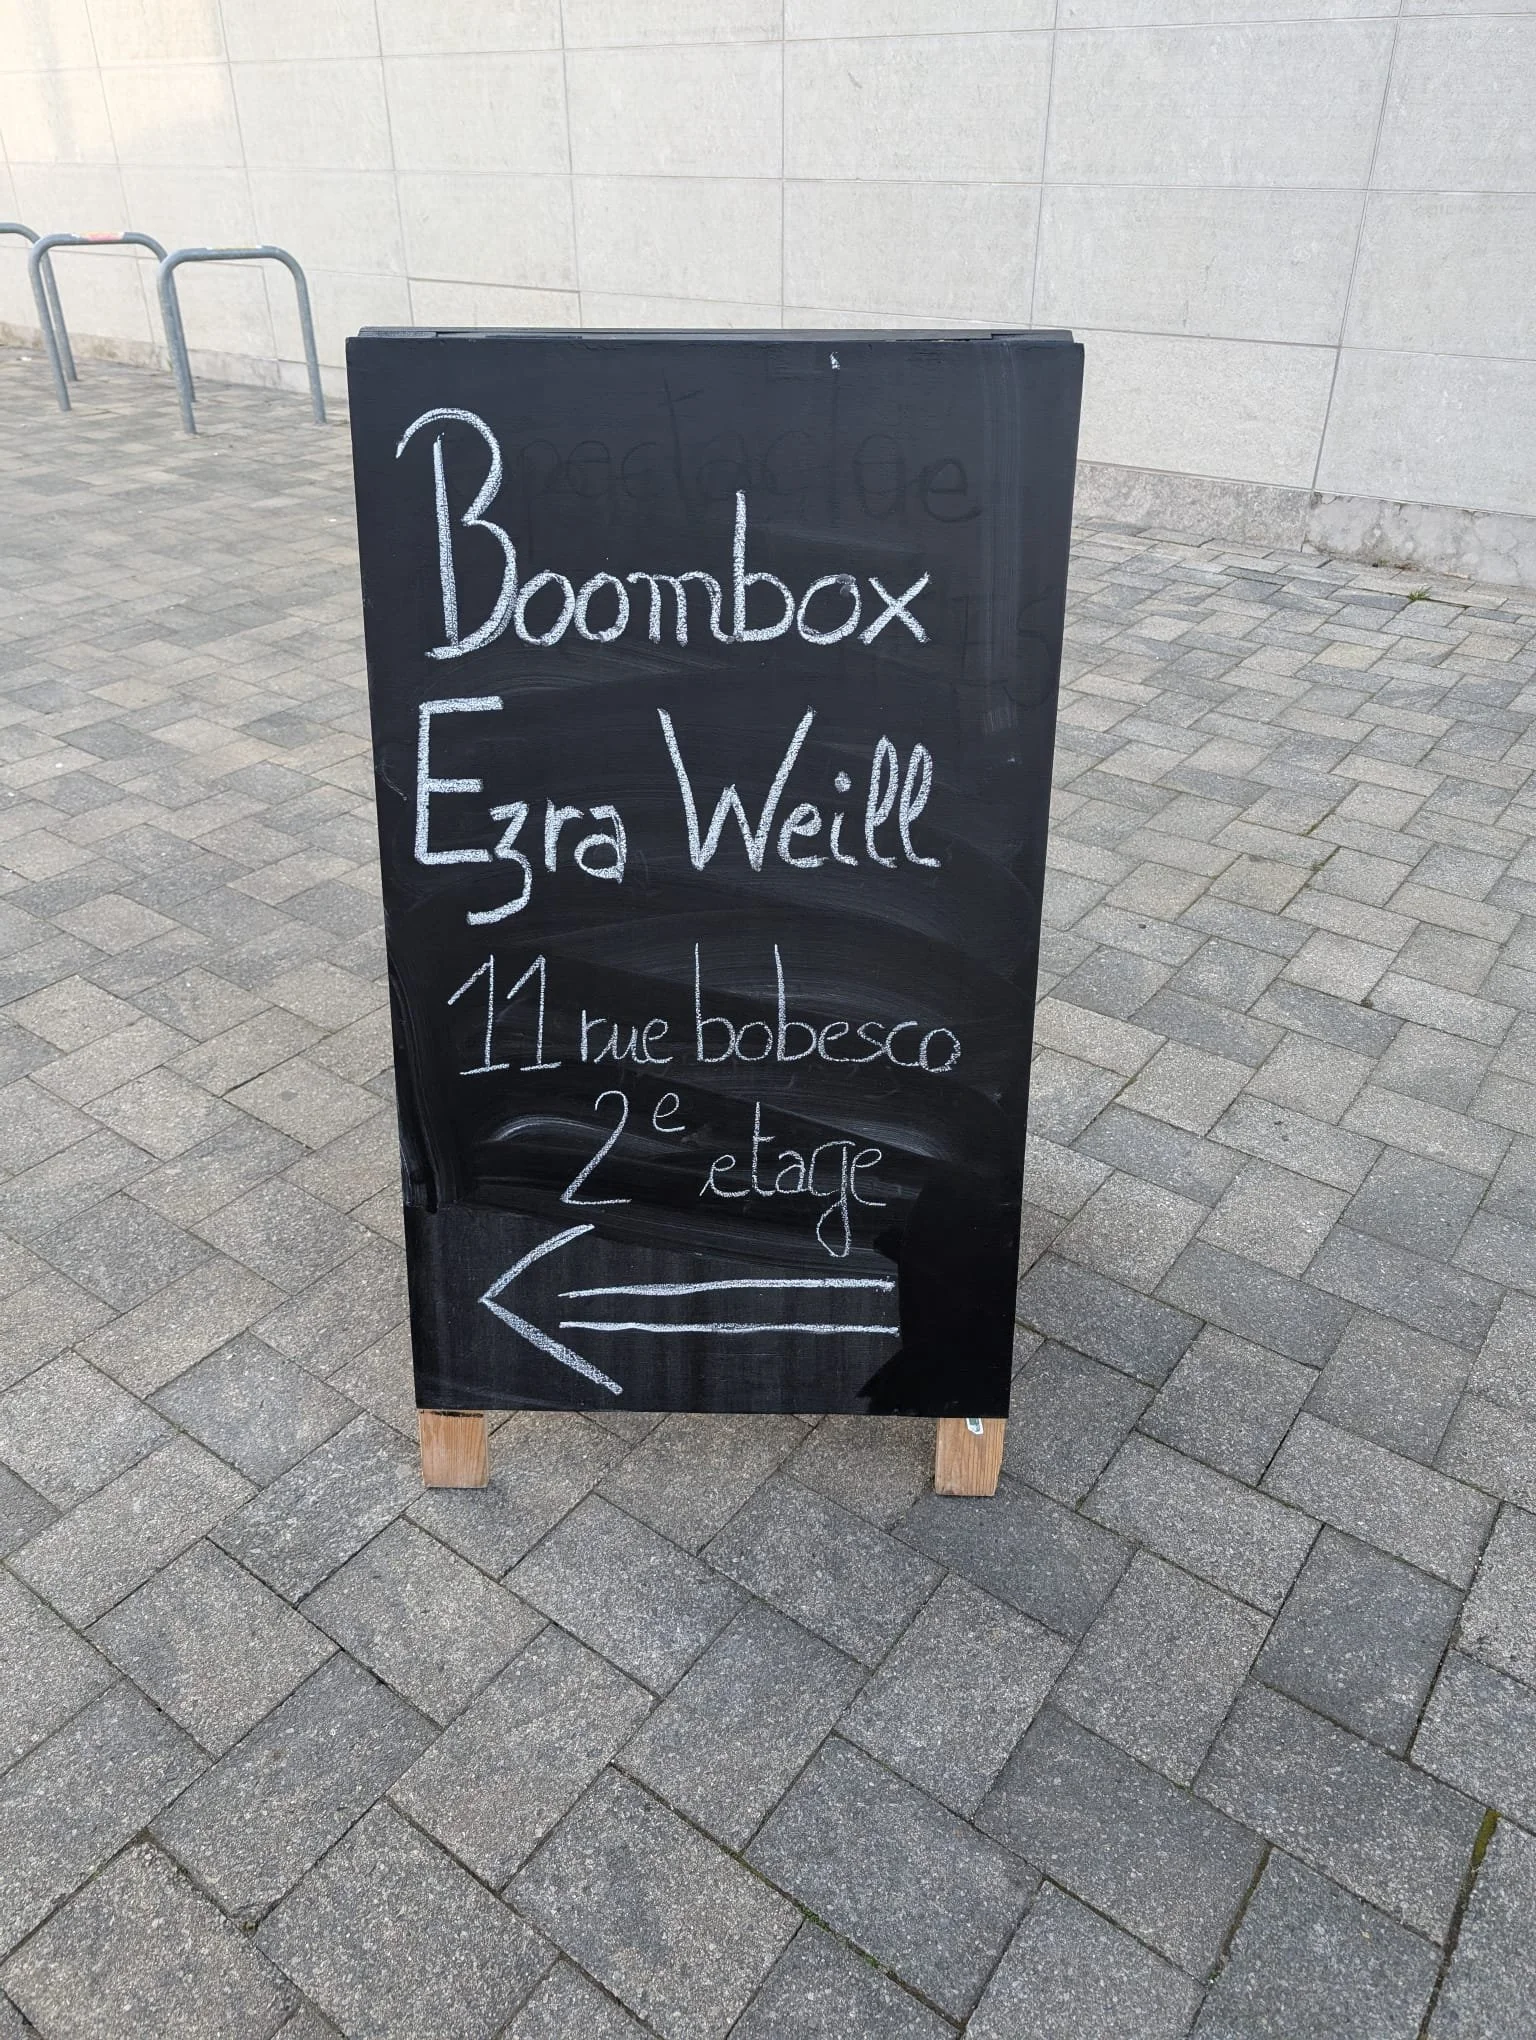 Boombox
Ezra Weill
11 rue bobesco
2e etage